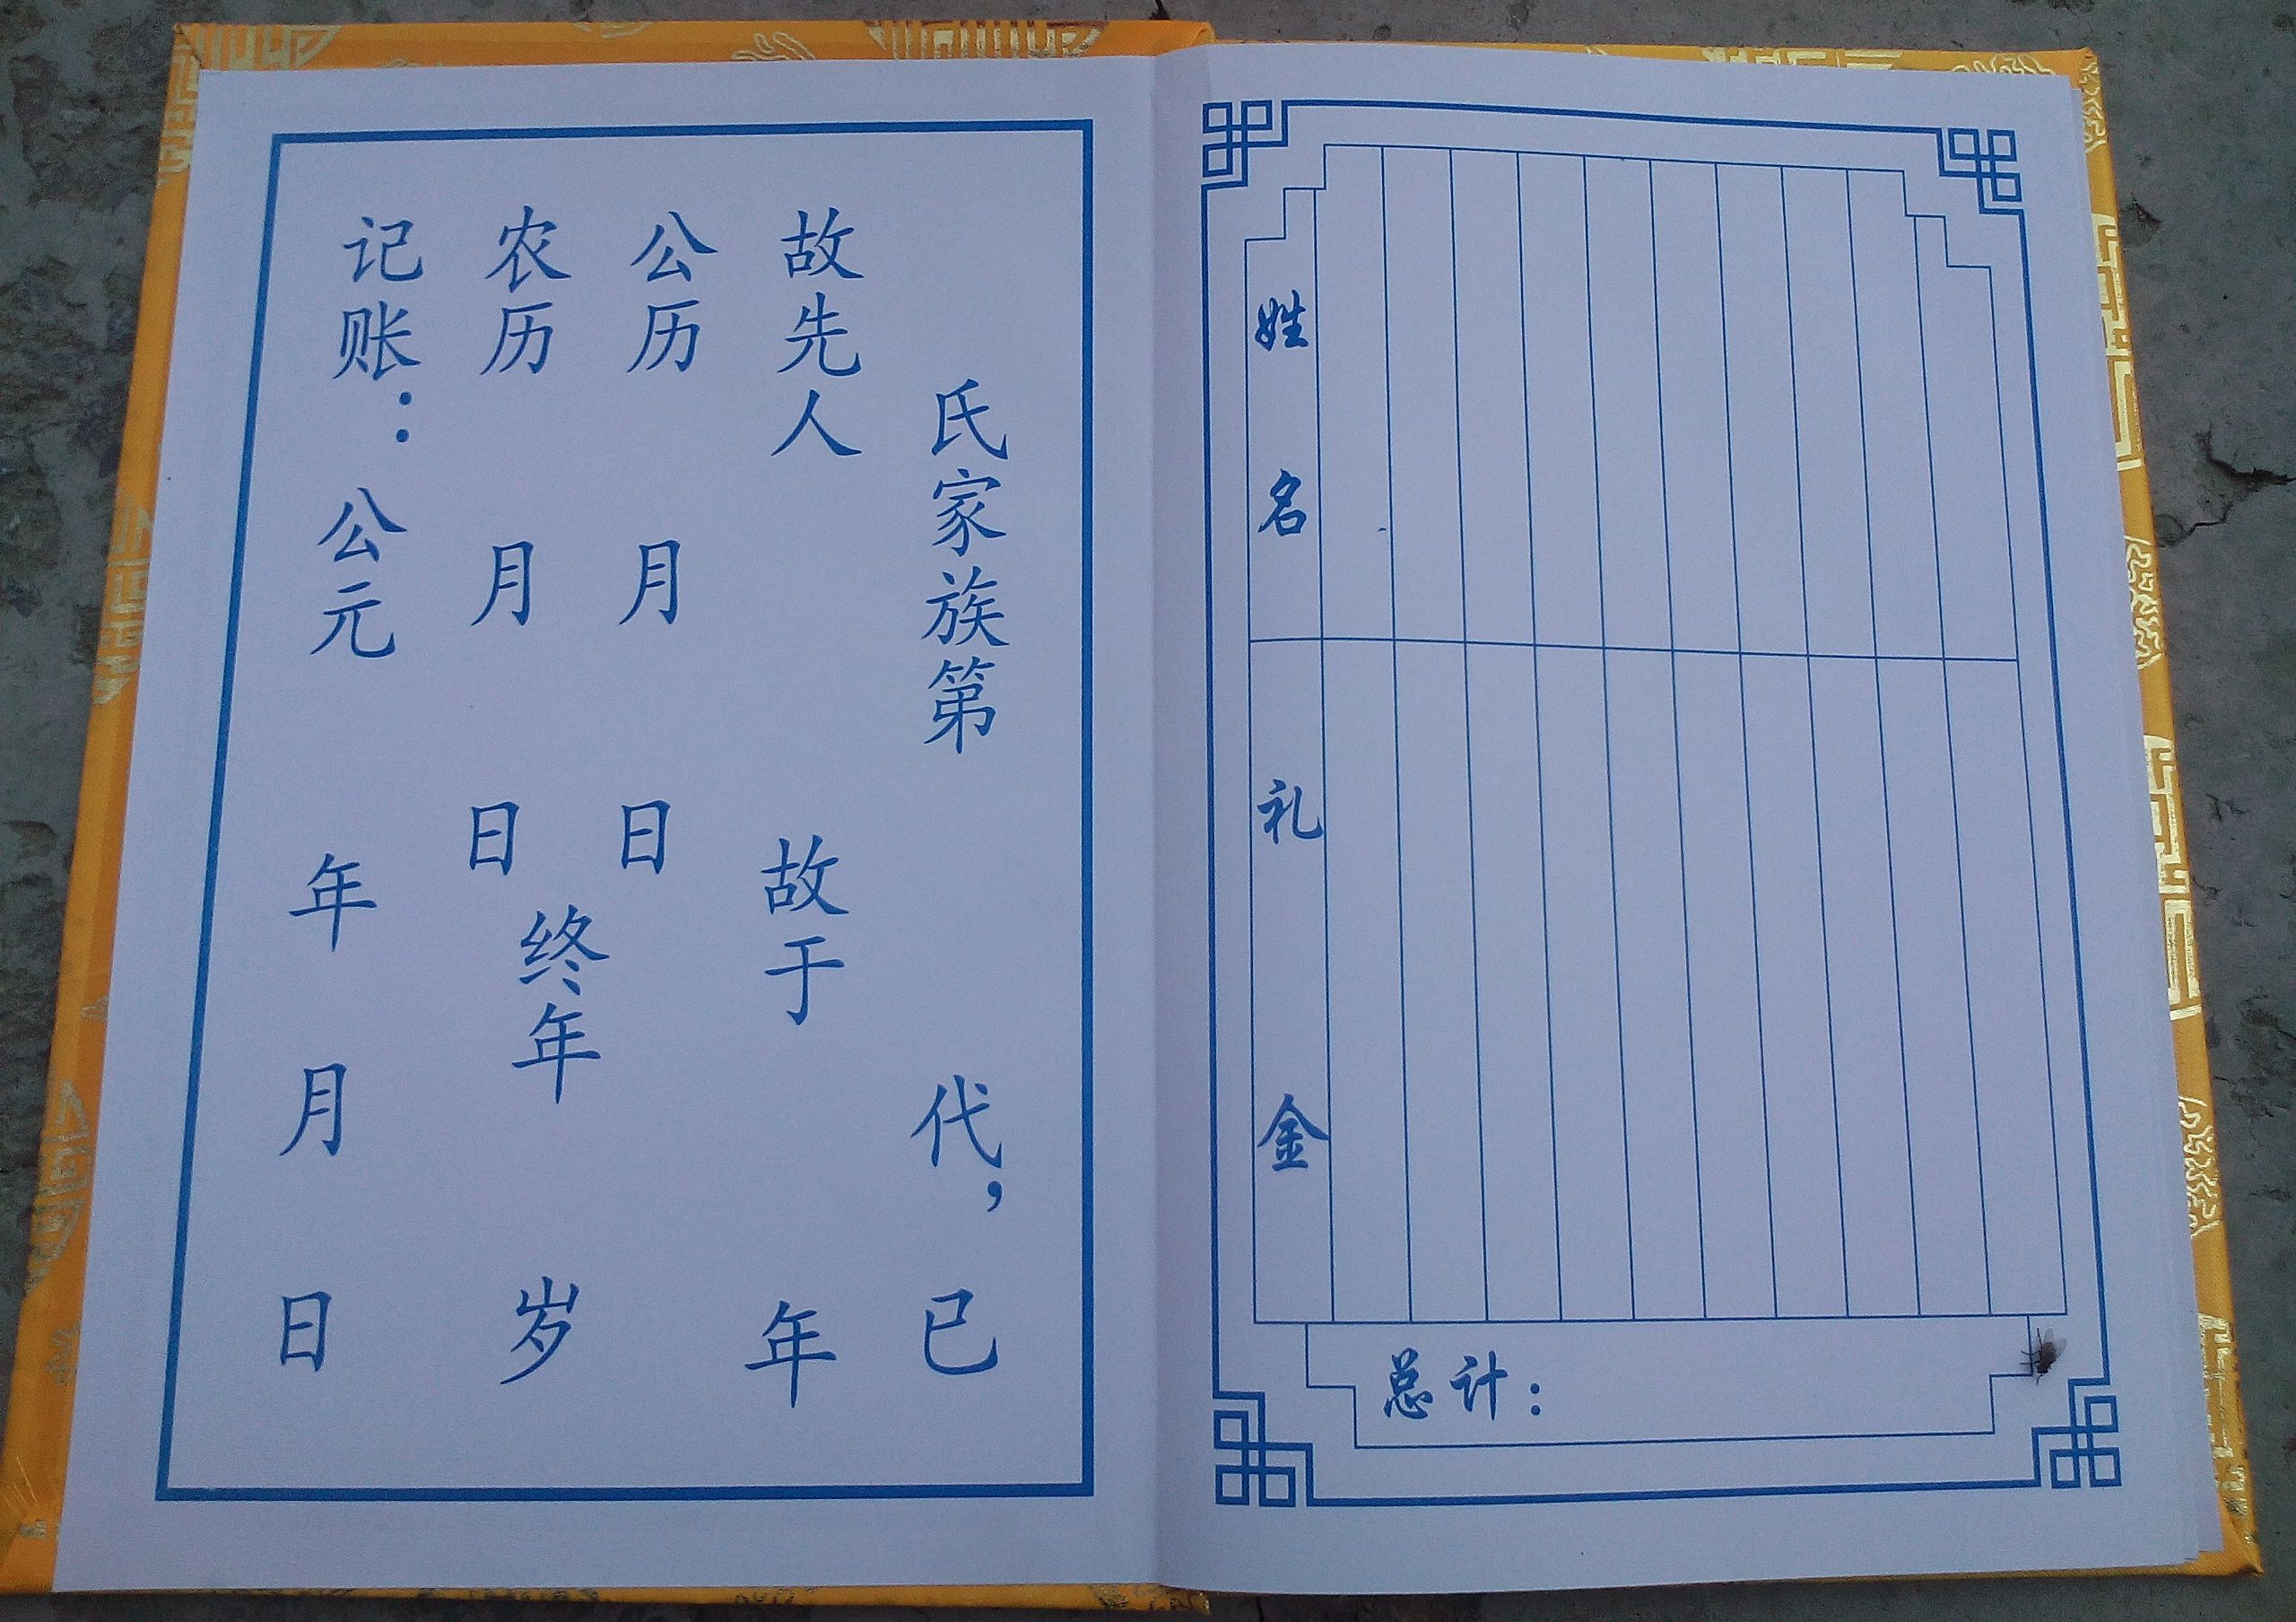 氏家族第 代，已
故先人 故于 年
公历 月 日
农历 月 日
终年 岁
记账：公元 年 月 日
姓名
礼金
总计：